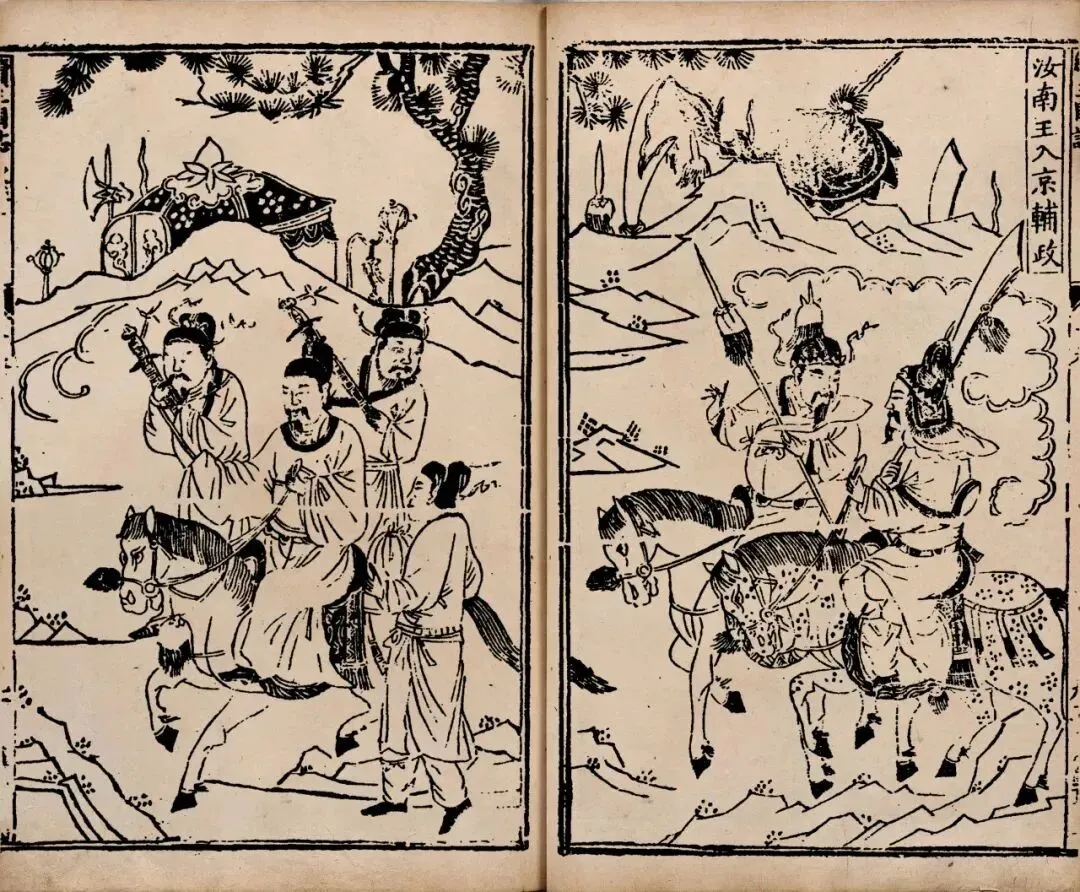 汝南王入京輔政